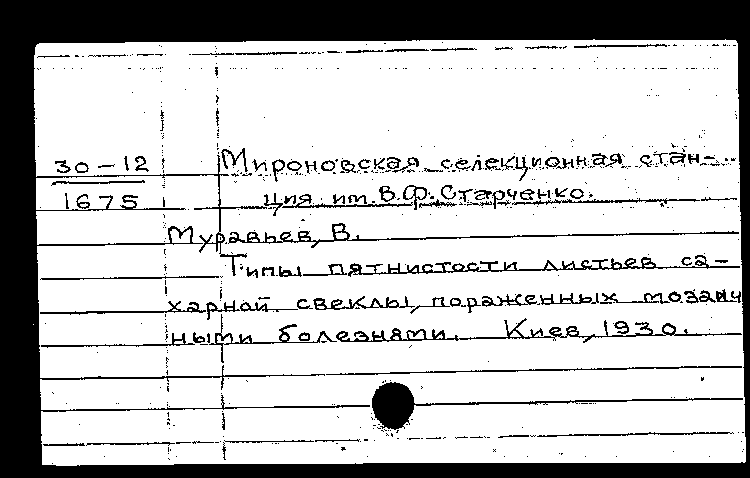 30-12
1675
Мироновская селекционная стан-
ция им. В.Ф. Старченко.
Муравьев, В.
Типы пятнистости листьев са-
харной свеклы, пораженных мозаич
ными болезнями. Киев, 1930.